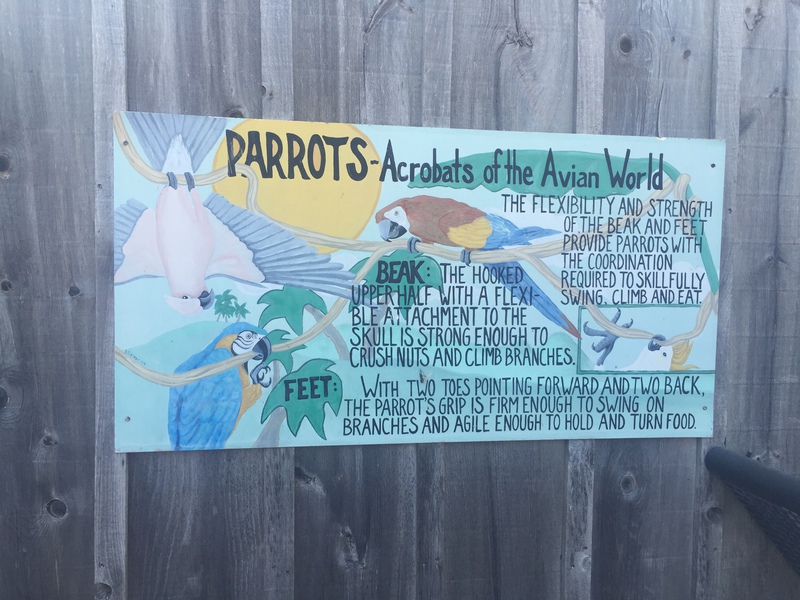 PARROTS-Acrobats of the Avian World
THE FLEXIBILITY AND STRENGTH
OF THE BEAK AND FEET
PROVIDE PARROTS WITH
THE COORDINATION
REQUIRED TO SKILLFULLY
SWING, CLIMB AND EAT.
BEAK: THE HOOKED
UPPER HALF WITH A FLEXI-
BLE ATTACHMENT TO THE
SKULL IS STRONG ENOUGH TO
CRUSH NUTS AND CLIMB BRANCHES.
FEET: WITH TWO TOES POINTING FORWARD AND TWO BACK,
THE PARROT'S GRIP IS FIRM ENOUGH TO SWING ON
BRANCHES AND AGILE ENOUGH TO HOLD AND TURN FOOD.